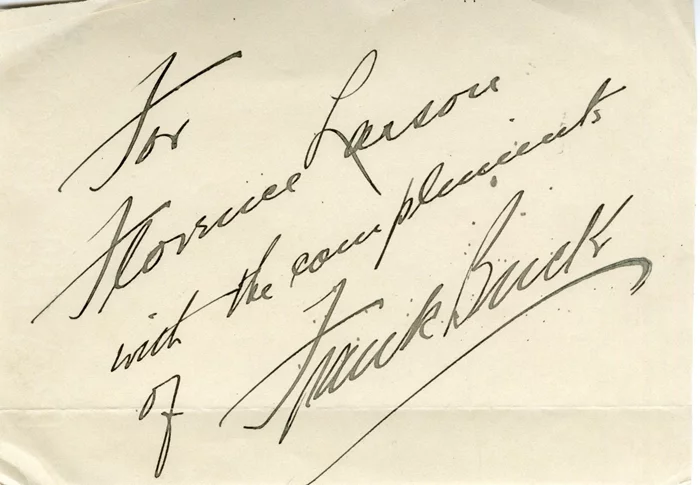 For
Florence Larson
with the compliments
of Frank Buck